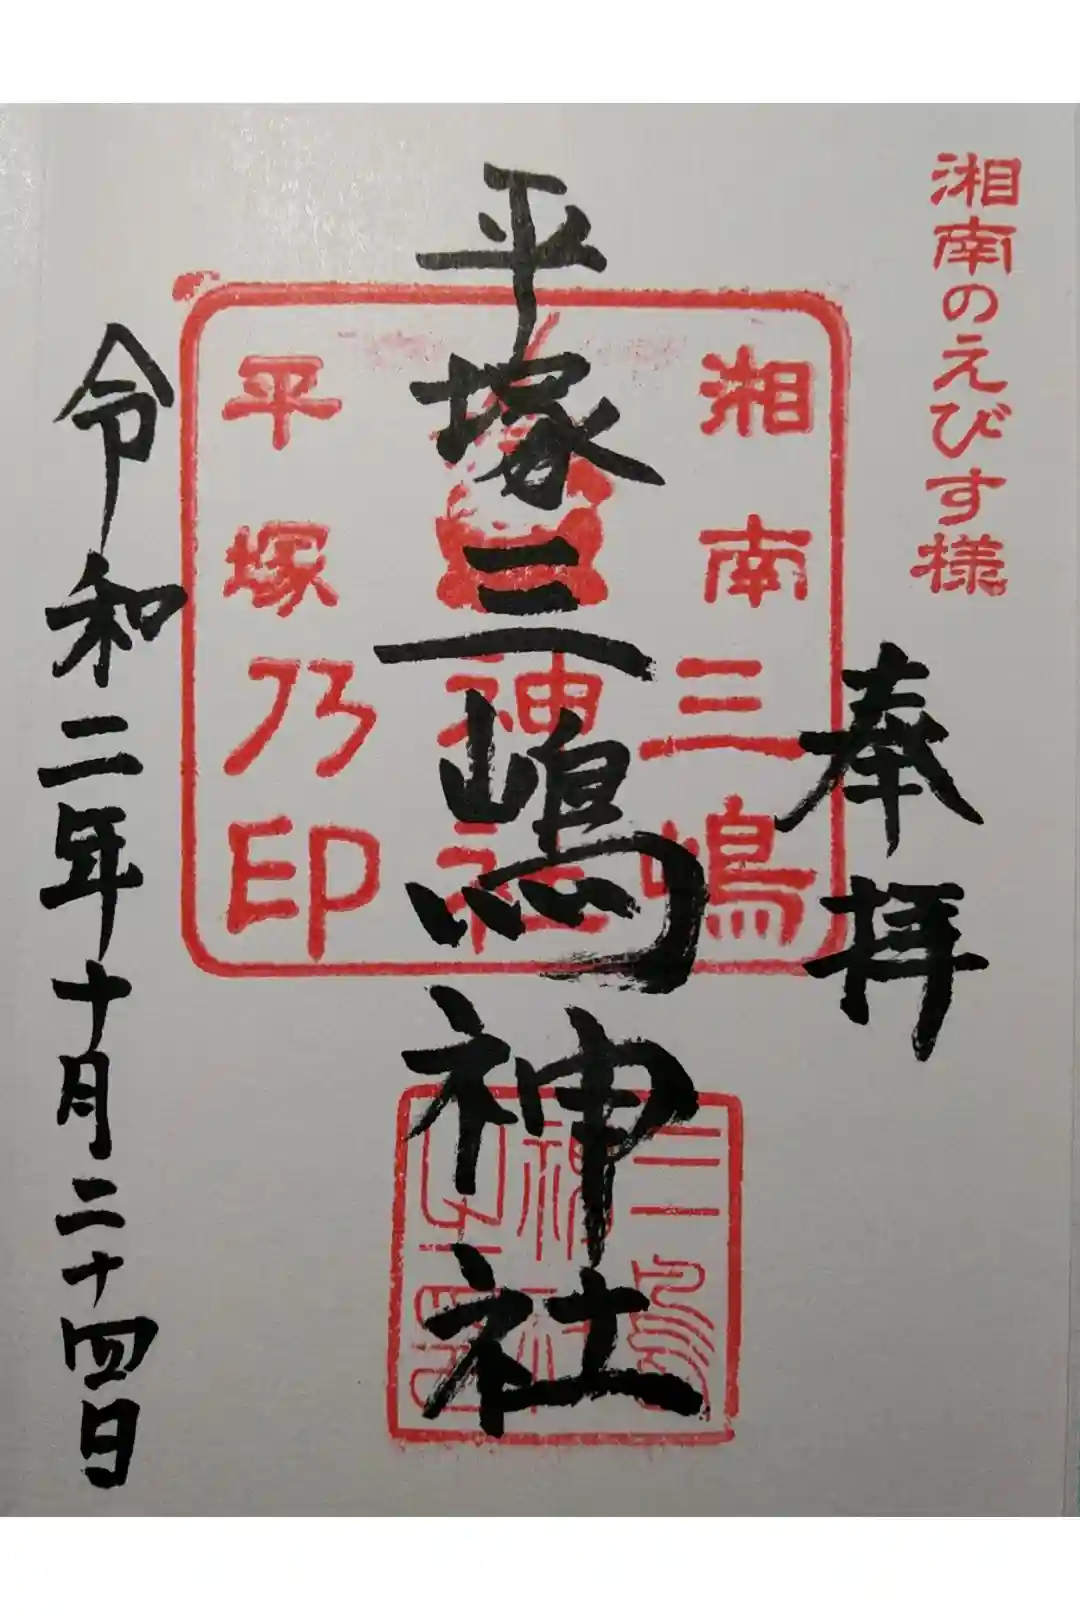 湘南のえびす様
奉拝
平塚三嶋神社
令和二年十月二十四日
湘南三嶋
神社
平塚乃印
三島
神社
之印